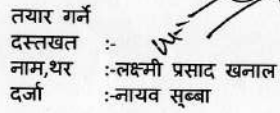 तयार गर्ने
दस्तखत :-
नाम,थर :-लक्ष्मी प्रसाद खनाल
दर्जा :-नायव सुब्बा